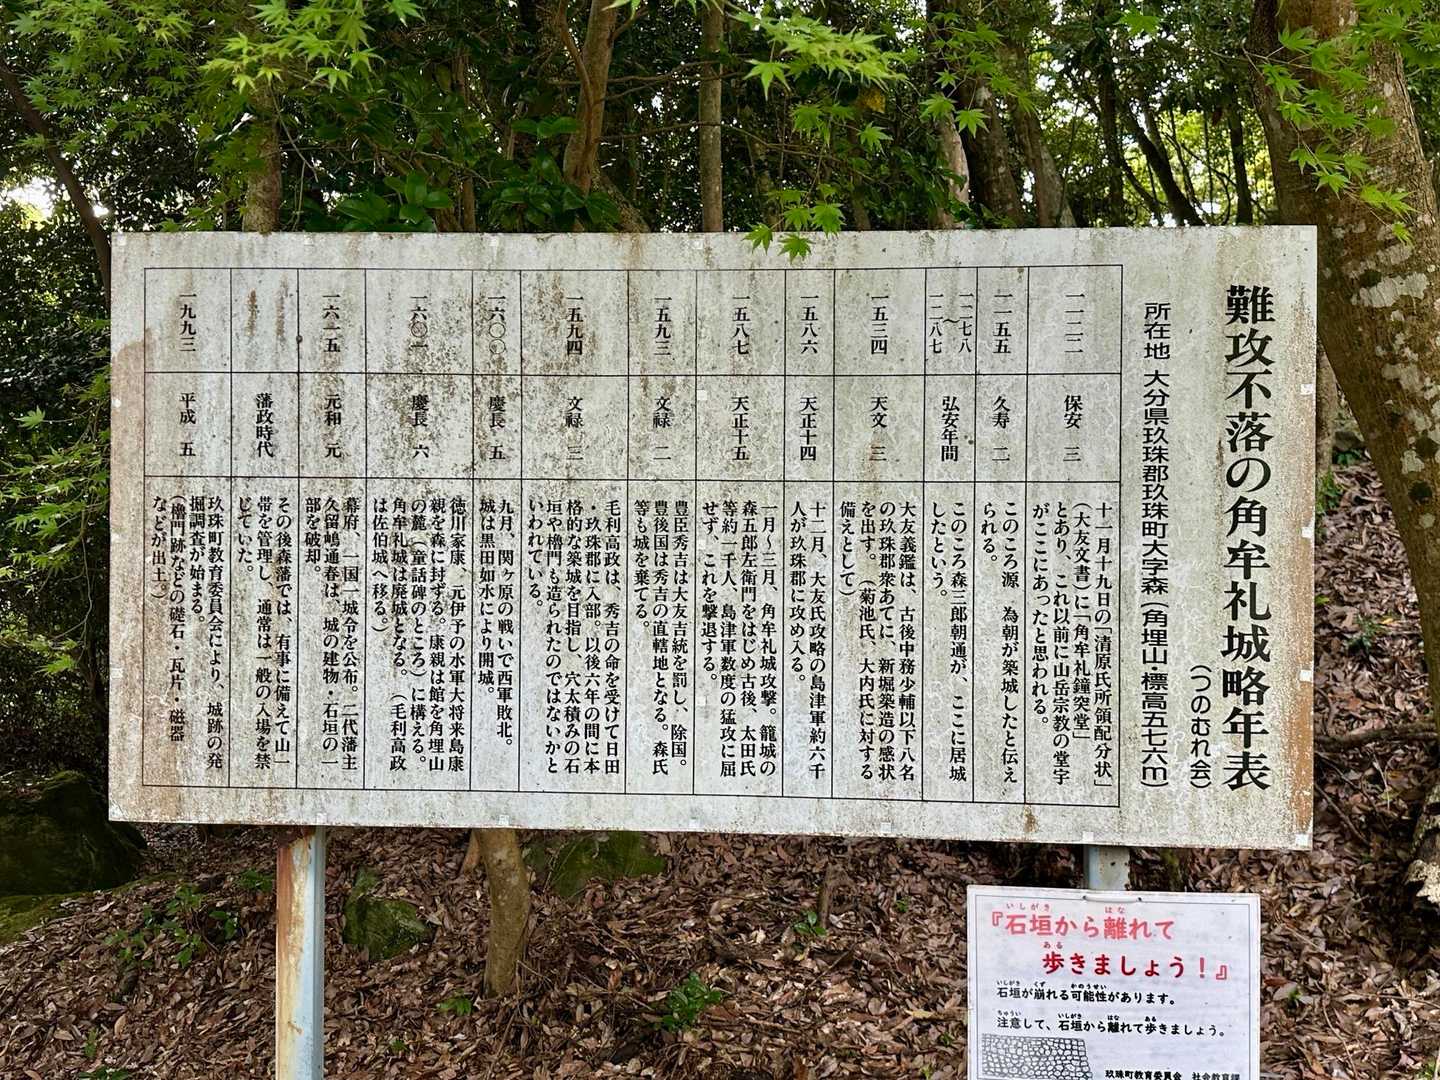 難攻不落の角牟礼城略年表
(つのむれ会)
所在地 大分県玖珠郡玖珠町大字森(角埋山・標高五七六m)
一一二二
保安 三
十一月十九日の「清原氏所領配分状」
(大友文書)に「角牟礼鐘突堂」
とあり、これ以前に山岳宗教の堂宇
がここにあったと思われる。
一一五五
久寿 二
このころ源 為朝が築城したと伝え
られる。
一二七八
〜
一二八七
弘安年間
このころ森三郎朝通が、ここに居城
したという。
一五三四
天文 三
大友義鑑は、古後中務少輔以下八名
の玖珠郡衆あてに、新堀築造の感状
を出す。(菊池氏、大内氏に対する
備えとして)
一五八六
天正十四
十二月、大友氏攻略の島津軍約六千
人が玖珠郡に攻め入る。
一五八七
天正十五
一月〜三月、角牟礼城攻撃。籠城の
森五郎左衛門をはじめ古後、太田氏
等約一千人、島津軍数度の猛攻に屈
せず、これを撃退する。
一五九三
文禄 二
豊臣秀吉は大友吉統を罰し、除国。
豊後国は秀吉の直轄地となる。森氏
等も城を棄てる。
一五九四
文禄 三
毛利高政は、秀吉の命を受けて日田
・玖珠郡に入部。以後六年の間に本
格的な築城を目指し、穴太積みの石
垣や櫓門も造られたのではないかと
いわれている。
一六〇〇
慶長 五
九月、関ヶ原の戦いで西軍敗北。
城は黒田如水により開城。
一六〇一
慶長 六
徳川家康、元伊予の水軍大将来島康
親を森に封ずる。康親は館を角埋山
の麓(童話碑のところ)に構える。
角牟礼城は廃城となる。(毛利高政
は佐伯城へ移る。)
一六一五
元和 元
幕府、一国一城令を公布。二代藩主
久留嶋通春は、城の建物・石垣の一
部を破却。
藩政時代
その後森藩では、有事に備えて山一
帯を管理し、通常は一般の入場を禁
じていた。
一九九三
平成 五
玖珠町教育委員会により、城跡の発
掘調査が始まる。
(櫓門跡などの礎石・瓦片・磁器
などが出土。)
『石垣から離れて
歩きましょう!』
石垣が崩れる可能性があります。
注意して、石垣から離れて歩きましょう。
玖珠町教育委員会 社会教育課